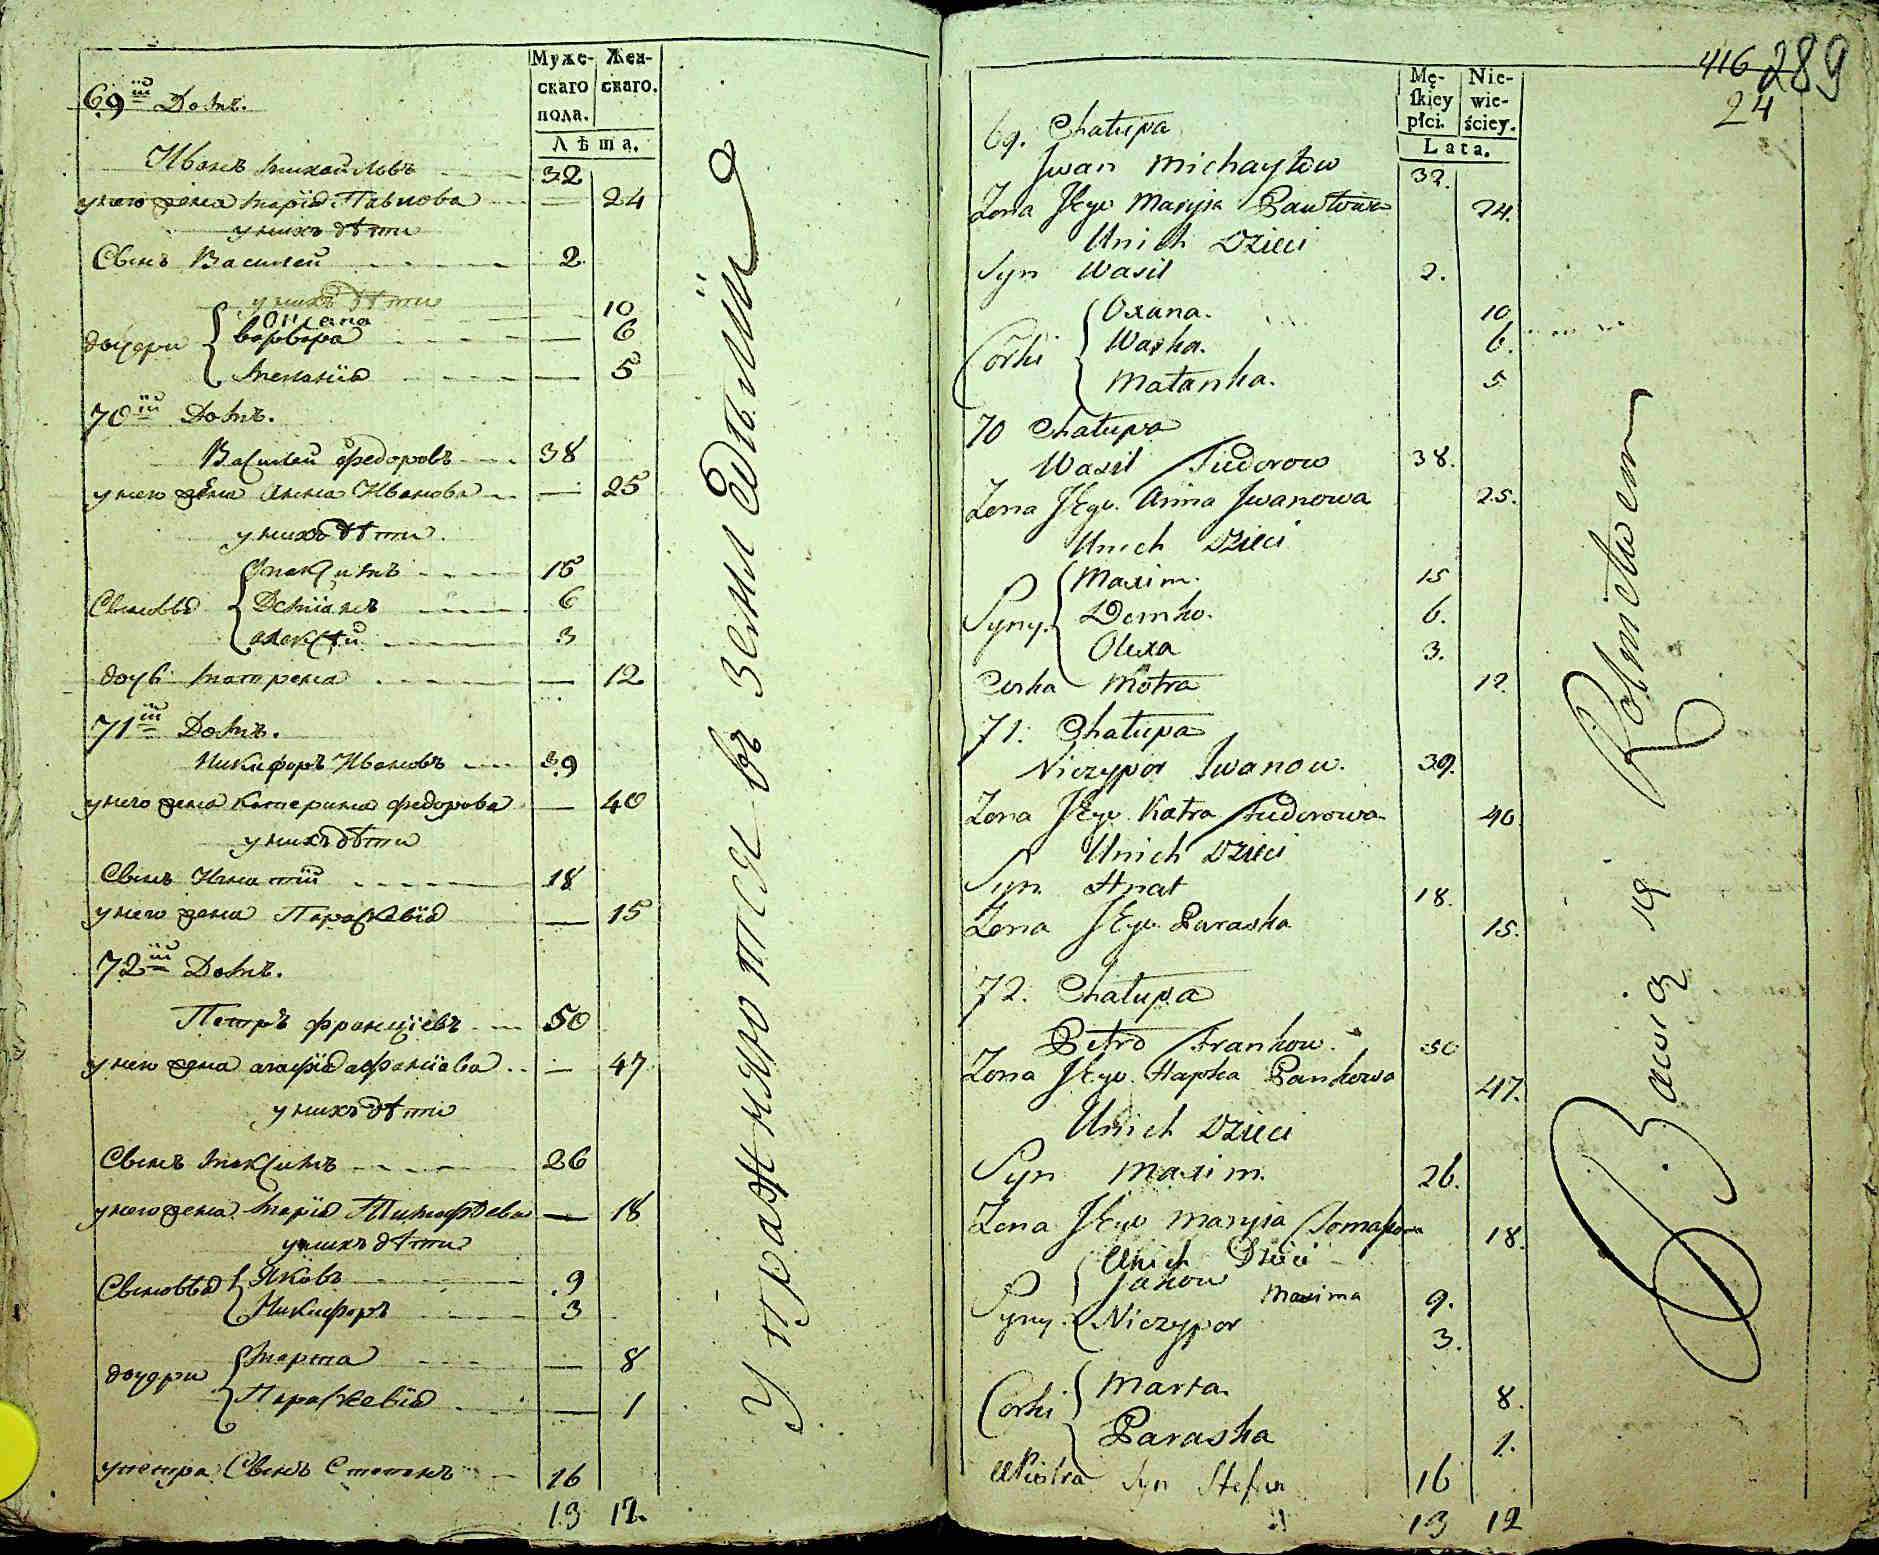 Муже-
скаго
пола.
Жен-
скаго.
Лѣта.
69ій Домъ.
Иванъ Михайловъ 32
у него жена Марія Павлова — 24
у нихъ дѣти
Сынъ Василей 2
у нихъ дѣти
Оксана 10
дочери Варвара 6
Меланія — 5
70ій Домъ.
Василей Федоровъ 38
у него жена Анна Иванова — 25
у нихъ дѣти
Максимъ 15
Сыновья Деміянъ 6
Алексѣй 3
дочь Матрена — 12
71ій Домъ.
Никифоръ Ивановъ 39
у него жена Катерина Федорова — 40
у нихъ дѣти
Сынъ Игнатій 18
у него жена Параскевія — 15
72ій Домъ.
Петръ Францієвъ 50
у него жена Агафія — 47
у нихъ дѣти
Сынъ Максимъ 26
у него жена Марія — 18
у нихъ дѣти
Сыновья Яковъ 9
Никифоръ 3
дочери Марта — 8
Параскевія — 1
у Петра Сынъ Степанъ 16
13 12.
Упражняются въ Земледѣліи
416 289
24
Mę-
skiey
płci.
Nie-
wie-
ściey.
Lata.
69. Chałupa
Iwan Michayłow 32.
Zona Jego Maryia Pawłowa 24.
Unich Dzieci
Syn Wasil 2.
Oxana. 10
Corki Warka. 6.
Małanka. 5
70 Chałupa
Wasil Fiudorow 38.
Zona Jego Anna Iwanowa 25.
Unich Dzieci
Maxim. 15
Syny. Demko. 6.
Olexa 3.
Corka Motra 12
71. Chałupa
Niczypor Iwanow. 39.
Zona Jego Katra Fiudorowa 40
Unich Dzieci
Syn Hnat 18.
Zona Jego Paraska 15.
72. Chałupa
Petro Frankow. 50
Zona Jego Hapka Pankowa 47.
Unich Dzieci
Syn Maxim. 26.
Zona Jego Maryia 18.
Unich Dzieci
Maxima 9.
Syny. Niczypor 3.
Corki Marta 8.
Paraska 1.
U Piotra Syn Stefan 16
13 12
Bawią się Rolnictwem